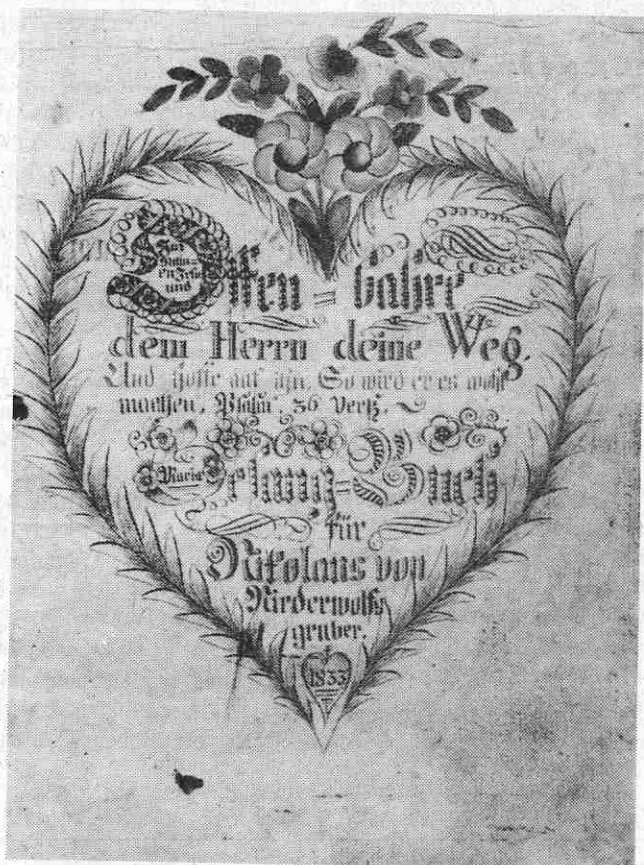 en Jesu
und
Offen = bahre
dem Herrn deine Weg.
Und hoffe auf ihn, So wird er es wohl
machen. Psalm. 36 Verß.
Maria
Buch
für
Nikolaus von
Niderwolfs
gruber.
1833